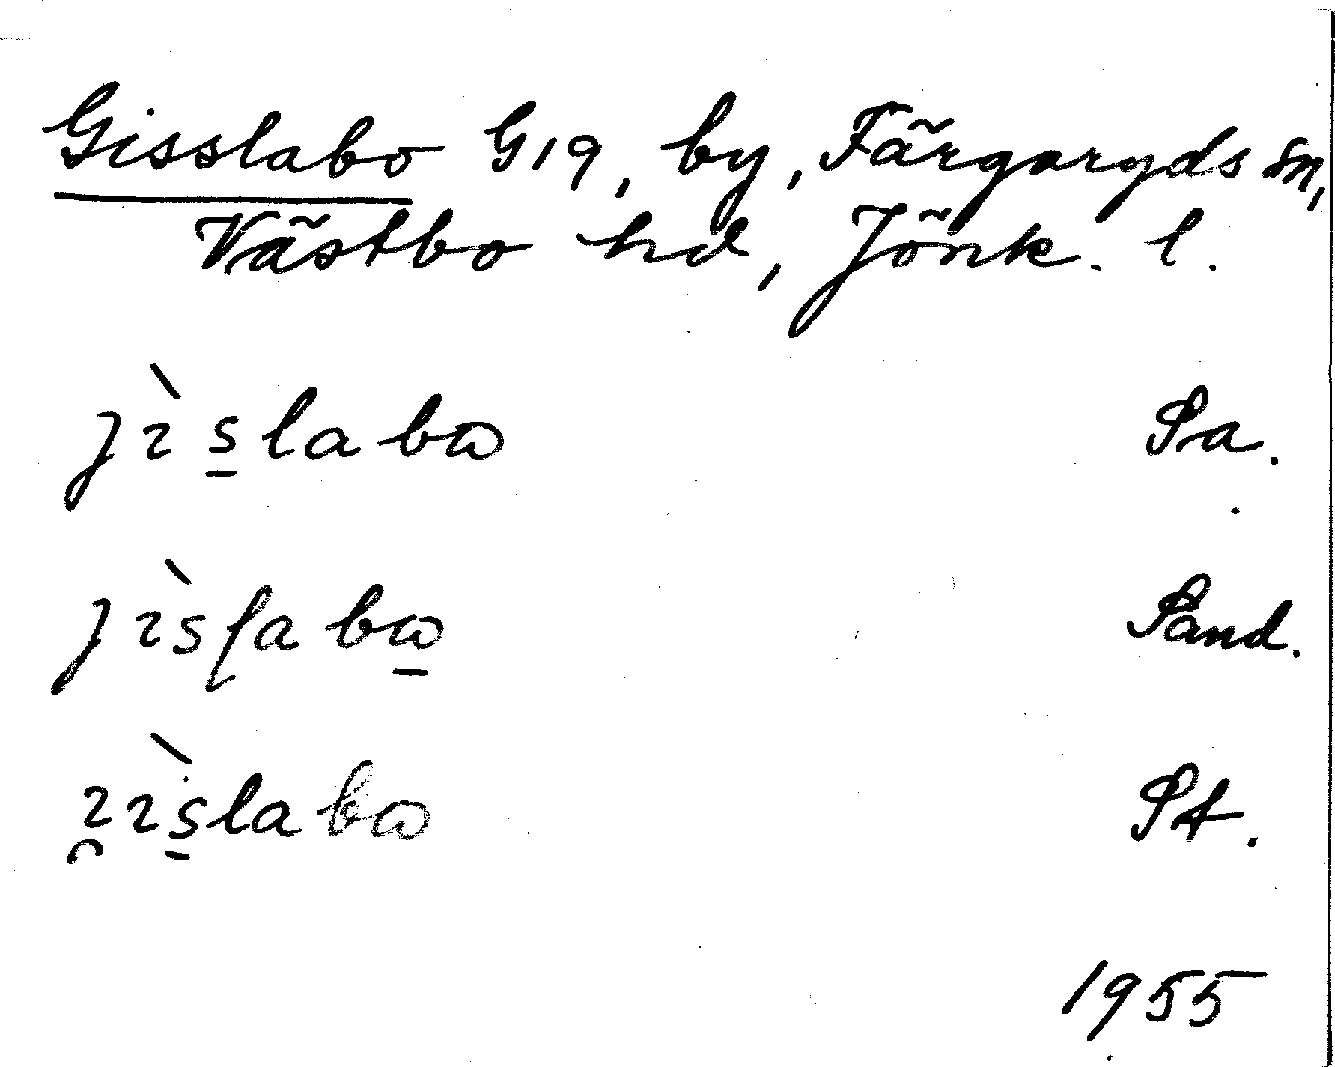 Gisslabo G19, by, Färgaryds sn,
Västbo hd, Jönk. l.
jìslabω Sa.
jìslabω Sand.
ıìslabω St.
1955